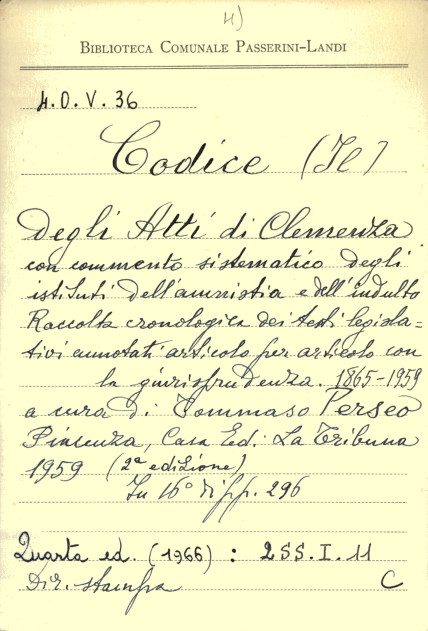 4)
BIBLIOTECA COMUNALE PASSERINI-LANDI
4.O.V.36
Codice (Il)
degli Atti di Clemenza
con commento sistematico degli
istituti dell'amnistia e dell'indulto
Raccolta cronologica dei testi legisla=
tivi annotati articolo per articolo con
la giurisprudenza. 1865-1959
a cura di Tommaso Perseo
Piacenza, Casa Ed. La Tribuna
1959 (2ª edizione)
In 16° di pp. 296
Quarta ed. (1966) : 2SS.I.11
Dir. stampa C